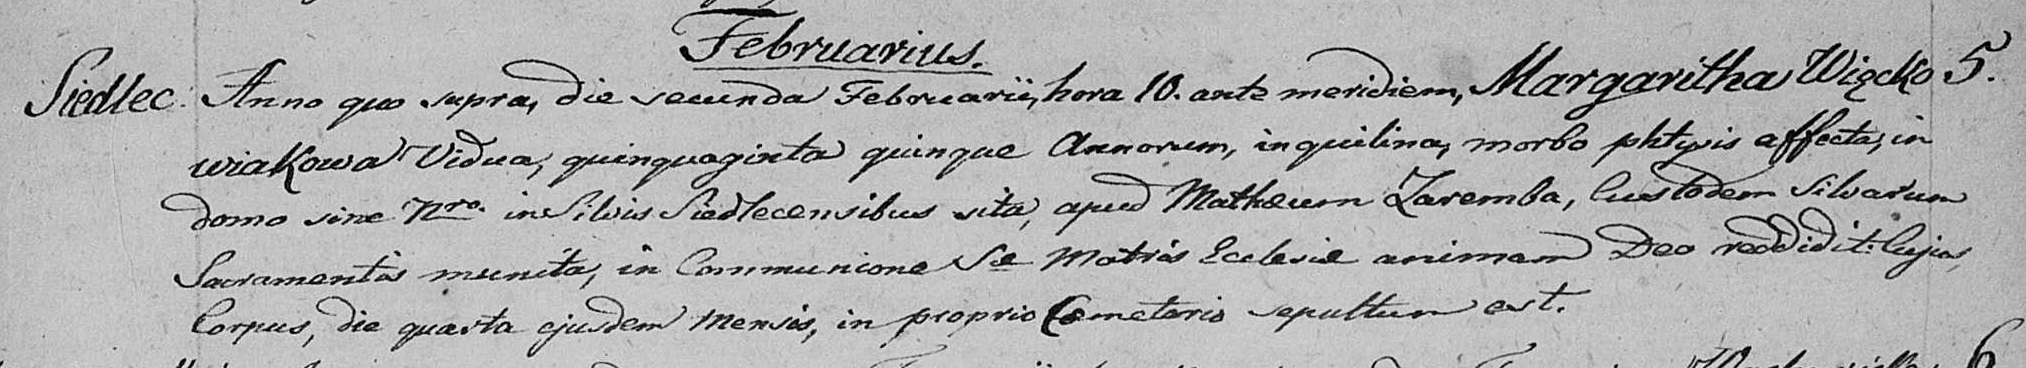 Februarius.
Siedlec. Anno quo supra, die secunda Februarii, hora 10. ante meridiem, Margaritha Więcko 5.
wiakowa Vidua, quinquaginta quinque Annorum, inquilina, morbo phtysis affecta, in
domo sine Nro. in Silvis Siedlecensibus sita, apud Mathæum Zaremba, Custodem Silvarum
Sacramentis munita, in Communione Sæ Matris Ecclesiæ animam Deo reddidit. Cujus
Corpus, die quarta ejusdem Mensis, in proprio Cœmeterio sepultum est.
6